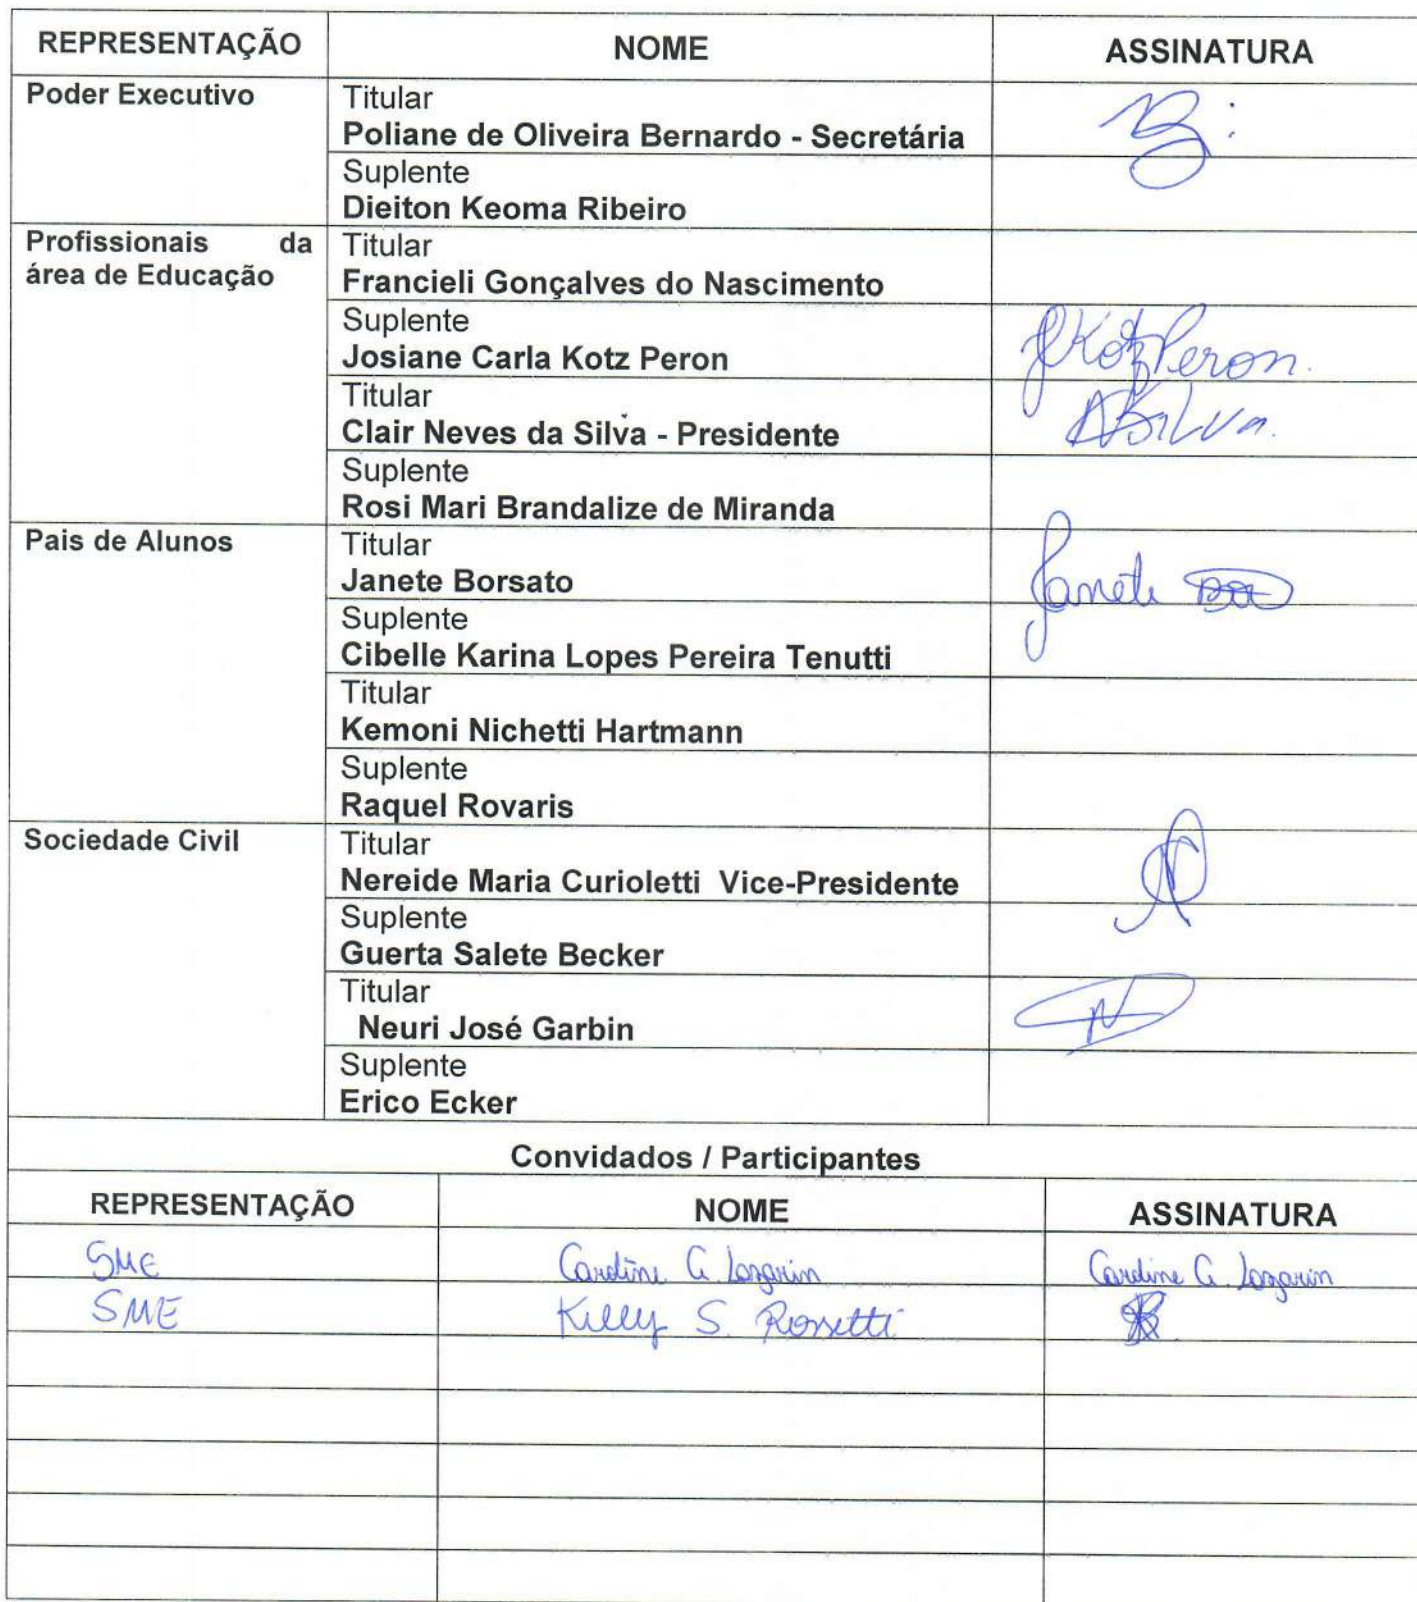 REPRESENTAÇÃO NOME ASSINATURA
Poder Executivo Titular
Poliane de Oliveira Bernardo - Secretária
Suplente
Dieiton Keoma Ribeiro
Profissionais da Titular
área de Educação Francieli Gonçalves do Nascimento
Suplente
Josiane Carla Kotz Peron JKotzPeron.
Titular
Clair Neves da Silva - Presidente Silva.
Suplente
Rosi Mari Brandalize de Miranda
Pais de Alunos Titular
Janete Borsato Janete
Suplente
Cibelle Karina Lopes Pereira Tenutti
Titular
Kemoni Nichetti Hartmann
Suplente
Raquel Rovaris
Sociedade Civil Titular
Nereide Maria Curioletti Vice-Presidente
Suplente
Guerta Salete Becker
Titular
Neuri José Garbin
Suplente
Erico Ecker
Convidados / Participantes
REPRESENTAÇÃO NOME ASSINATURA
SME Caroline G. Lazarin Caroline G. Lazarin
SME Kelly S. Rossetti